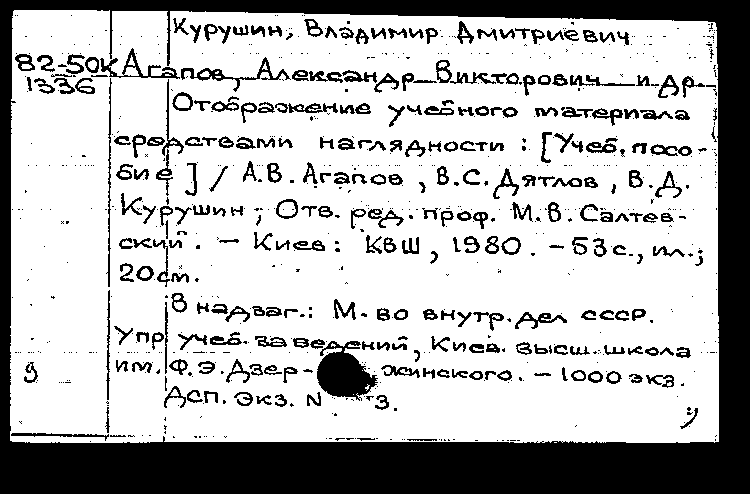 Курушин, Владимир Дмитриевич
82-50К Агапов, Александр Викторович и др.
1336
Отображение учебного материала
средствами наглядности : [Учеб. посо-
бие] / А.В. Агапов, В.С. Дятлов, В.Д.
Курушин ; Отв. ред. проф. М.В. Салтев-
ский. – Киев : КВШ, 1980. – 53 с., ил.;
20 см.
В надзаг.: М-во внутр. дел СССР.
Упр. учеб. заведений, Киев. высш. школа
им. Ф.Э. Дзер- жинского. – 1000 экз.
9
Дсп. Экз. N 3.